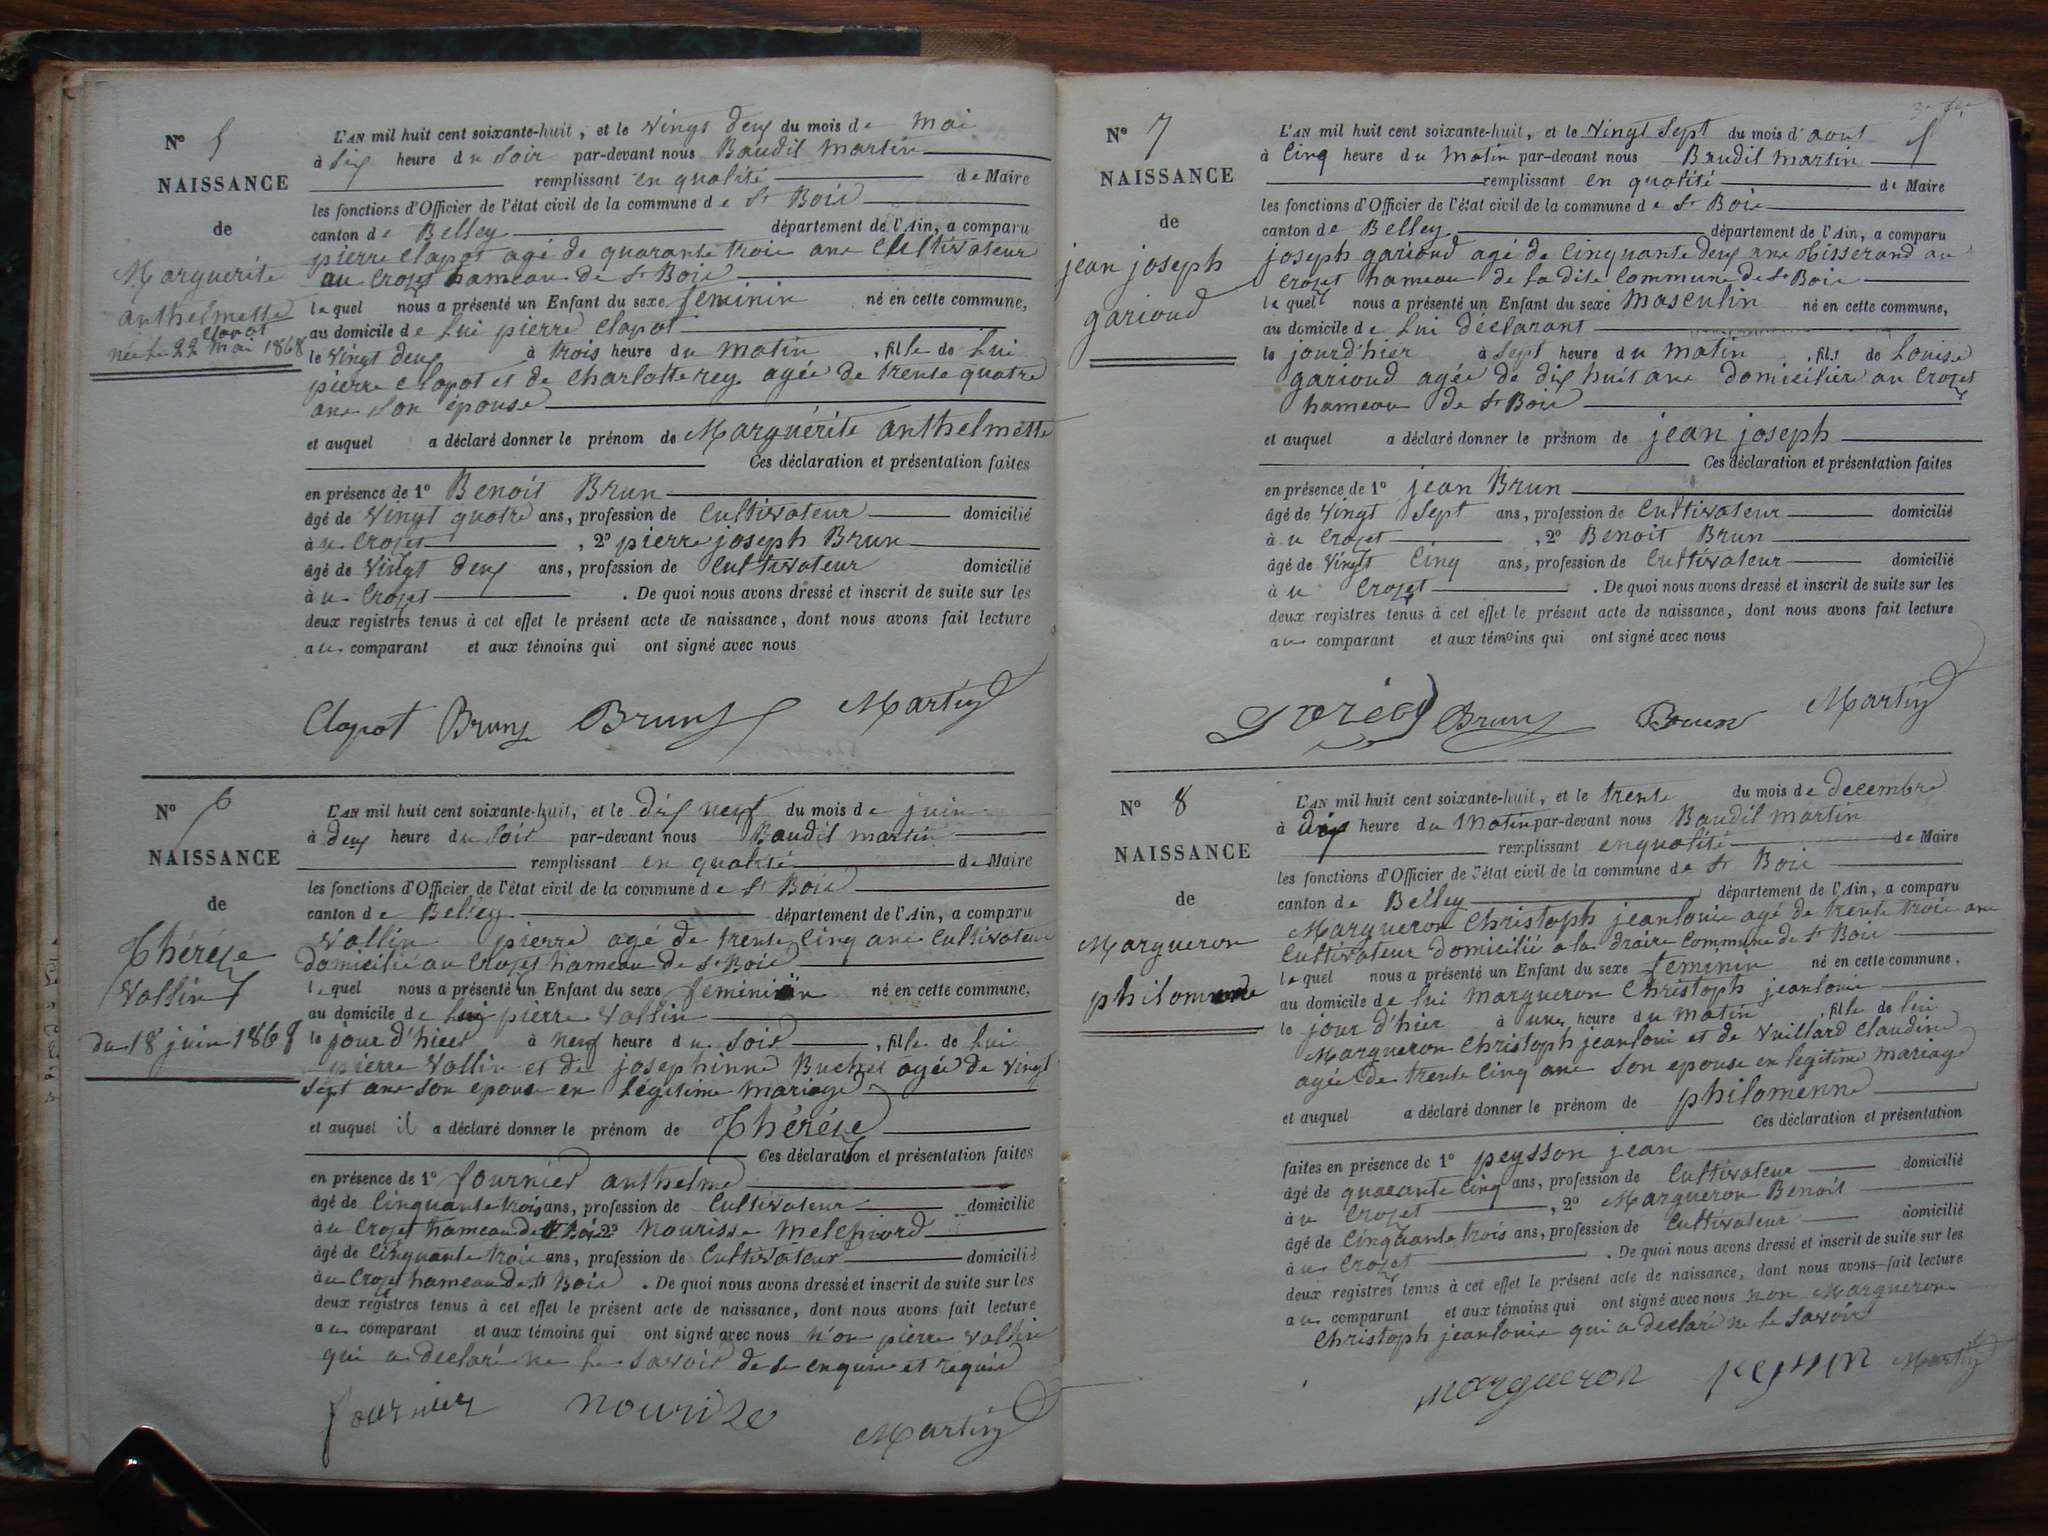 N° 5
NAISSANCE
de
Marguerite
anthelmette
Clapot
née le 22 mai 1868
L'AN mil huit cent soixante-huit, et le vingt deux du mois de mai
à six heure du soir par-devant nous Baudit martin
remplissant en qualité de Maire
les fonctions d'Officier de l'état civil de la commune de St Bois
canton de Belley département de l'Ain, a comparu
pierre Clapot agé de quarante trois ans Cultivateur
au Crozet hameau de St Bois
lequel nous a présenté un Enfant du sexe feminin né en cette commune,
au domicile de lui pierre Clapot
le vingt deux à trois heure du matin, fille de lui
pierre Clapot et de Charlotte rey agée de trente quatre
ans son épouse
et auquel a déclaré donner le prénom de Marguérite anthelmette
Ces déclaration et présentation faites
en présence de 1° Benoit Brun
âgé de vingt quatre ans, profession de Cultivateur domicilié
au Crozet, 2° pierre joseph Brun
âgé de vingt deux ans, profession de Cultivateur domicilié
au Crozet. De quoi nous avons dressé et inscrit de suite sur les
deux registres tenus à cet effet le présent acte de naissance, dont nous avons fait lecture
au comparant et aux témoins qui ont signé avec nous
Clapot Brun Brun Martin
N° 6
NAISSANCE
de
Thérése
Vallin
du 18 juin 1868
L'AN mil huit cent soixante-huit, et le dix neuf du mois de juin
à deux heure du soir par-devant nous Baudit martin
remplissant en qualité de Maire
les fonctions d'Officier de l'état civil de la commune de St Bois
canton de Belley département de l'Ain, a comparu
Vallin pierre agé de trente cinq ans Cultivateur
domicilié au Crozet hameau de St Bois
lequel nous a présenté un Enfant du sexe feminin né en cette commune,
au domicile de lui pierre Vallin
le jour d'hier à neuf heure du soir, fille de lui
pierre Vallin et de josephinne Buchet agée de vingt
sept ans son epouse en légitime mariage
et auquel il a déclaré donner le prénom de Thérése
Ces déclaration et présentation faites
en présence de 1° fournier anthelme
âgé de Cinquante trois ans, profession de Cultivateur domicilié
au Crozet hameau de St Bois 2° nourisse melchiord
âgé de Cinquante trois ans, profession de Cultivateur domicilié
au Crozet hameau de St Bois. De quoi nous avons dressé et inscrit de suite sur les
deux registres tenus à cet effet le présent acte de naissance, dont nous avons fait lecture
au comparant et aux témoins qui ont signé avec nous non pierre Vallin
qui a declaré ne le savoir de ce enquis et requis
fournier nourize Martin
N° 7
NAISSANCE
de
jean joseph
garioud
L'AN mil huit cent soixante-huit, et le vingt sept du mois d'aout
à Cinq heure du matin par-devant nous Baudit martin
remplissant en qualité de Maire
les fonctions d'Officier de l'état civil de la commune de St Bois
canton de Belley département de l'Ain, a comparu
joseph garioud agé de Cinquante deux ans tisserand au
Crozet hameau de la dite Commune de St Bois
lequel nous a présenté un Enfant du sexe masculin né en cette commune,
au domicile de lui déclarant
le jourd'hier à sept heure du matin, fils de Louise
garioud agée de dix huit ans domicilier au Crozet
hameau de St Bois
et auquel a déclaré donner le prénom de jean joseph
Ces déclaration et présentation faites
en présence de 1° jean Brun
âgé de vingt sept ans, profession de Cultivateur domicilié
au Crozet, 2° Benoit Brun
âgé de vingt Cinq ans, profession de Cultivateur domicilié
au Crozet. De quoi nous avons dressé et inscrit de suite sur les
deux registres tenus à cet effet le présent acte de naissance, dont nous avons fait lecture
au comparant et aux témoins qui ont signé avec nous
Brun Brun Martin
N° 8
NAISSANCE
de
Margueron
philomenne
L'AN mil huit cent soixante-huit, et le trente du mois de decembre
à dix heure du matin par-devant nous Baudit martin
remplissant en qualité de Maire
les fonctions d'Officier de l'état civil de la commune de St Bois
canton de Belley département de l'Ain, a comparu
Margueron Christoph jeanlouis agé de trente trois ans
Cultivateur domicilié a la draire Commune de St Bois
lequel nous a présenté un Enfant du sexe feminin né en cette commune,
au domicile de lui Margueron Christoph jeanlouis
le jour d'hier à une heure du matin, fille de lui
Margueron Christoph jeanloui et de Vuillard Claudine
agée de trente Cinq ans son epouse en legitime mariage
et auquel a déclaré donner le prénom de philomenne
Ces déclaration et présentation
faites en présence de 1° peysson jean
âgé de quarante Cinq ans, profession de Cultivateur domicilié
au Crozet, 2° Margueron Benoit
âgé de Cinquante trois ans, profession de Cultivateur domicilié
au Crozet. De quoi nous avons dressé et inscrit de suite sur les
deux registres tenus à cet effet le présent acte de naissance, dont nous avons fait lecture
au comparant et aux témoins qui ont signé avec nous non Margueron
Christoph jeanlouis qui a declaré ne le savoir
margueron Martin